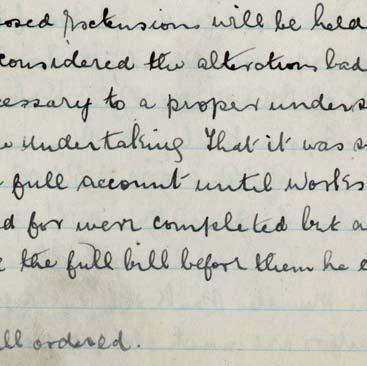 osed Extensions will be held
considered the alterations bad
cessary to a proper unders
undertaking That it was s
full account until works
d for were completed but a
the full bill before them he
ll ordered.